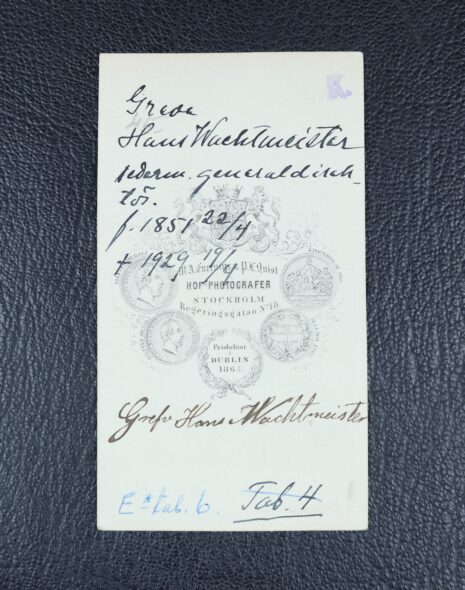 K.
Greve
Hans Wachtmeister
sederm. generaldirek-
tör.
f. 1851 22/4
† 1929 19/1
W. A. Eurenius & P. L. Quist
HOF-PHOTOGRAFER
STOCKHOLM
Regeringsgatan No 18.
Prisbelönt
i
DUBLIN
1865
Grefv Hans Wachtmeister
E* tab. 6. Tab. 4